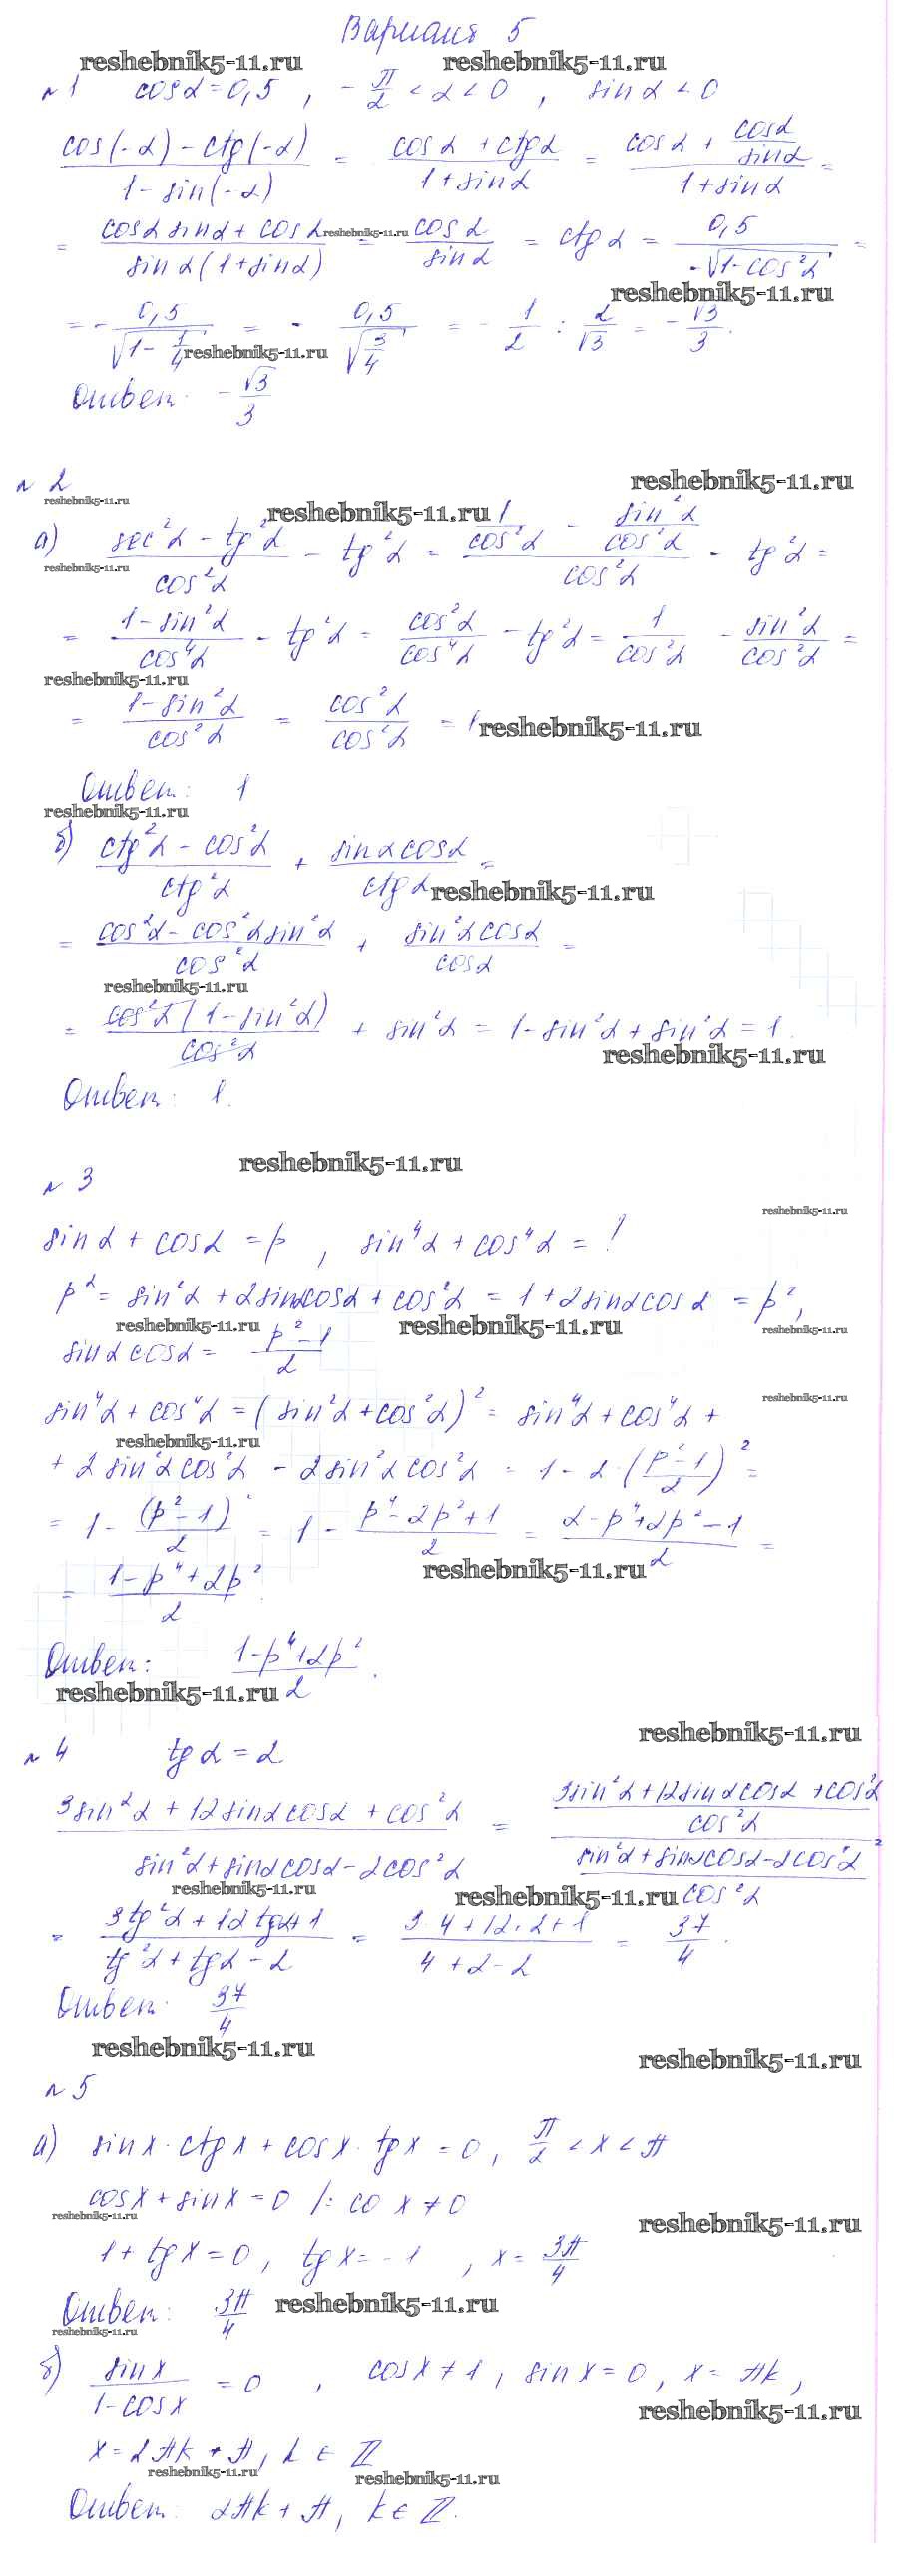 Вариант 5
reshebnik5-11.ru reshebnik5-11.ru
№1 cosα = 0,5 , -π/2 < α < 0 , sinα < 0
(cos(-α) - ctg(-α))/(1 - sin(-α)) = (cosα + ctgα)/(1 + sinα) = (cosα + cosα/sinα)/(1 + sinα) =
= (cosα sinα + cosα)/(sinα(1 + sinα)) = cosα/sinα = ctgα = 0,5/(-√(1 - cos²α)) =
reshebnik5-11.ru
reshebnik5-11.ru
= - 0,5/√(1 - 1/4) = - 0,5/√(3/4) = - 1/2 : 2/√3 = - √3/3.
reshebnik5-11.ru
Ответ: -√3/3
№2
reshebnik5-11.ru
reshebnik5-11.ru
reshebnik5-11.ru
а) (sec²α - tg²α)/cos²α - tg²α = (1/cos²α - sin²α/cos²α)/cos²α - tg²α =
reshebnik5-11.ru
= (1 - sin²α)/cos⁴α - tg²α = cos²α/cos⁴α - tg²α = 1/cos²α - sin²α/cos²α =
reshebnik5-11.ru
= (1 - sin²α)/cos²α = cos²α/cos²α = 1
reshebnik5-11.ru
Ответ: 1
reshebnik5-11.ru
б) (ctg²α - cos²α)/ctg²α + sinα cosα/ctgα =
reshebnik5-11.ru
= (cos²α - cos²α sin²α)/cos²α + sin²α cosα/cosα =
reshebnik5-11.ru
= cos²α(1 - sin²α)/cos²α + sin²α = 1 - sin²α + sin²α = 1.
reshebnik5-11.ru
Ответ: 1.
reshebnik5-11.ru
№3
reshebnik5-11.ru
sinα + cosα = p , sin⁴α + cos⁴α = ?
p² = sin²α + 2sinαcosα + cos²α = 1 + 2sinαcosα = p²,
reshebnik5-11.ru reshebnik5-11.ru reshebnik5-11.ru
sinαcosα = (p² - 1)/2
reshebnik5-11.ru
sin⁴α + cos⁴α = (sin²α + cos²α)² = sin⁴α + cos⁴α +
reshebnik5-11.ru
+ 2sin²αcos²α - 2sin²αcos²α = 1 - 2·((p² - 1)/2)² =
= 1 - (p² - 1)²/2 = 1 - (p⁴ - 2p² + 1)/2 = (2 - p⁴ + 2p² - 1)/2 =
reshebnik5-11.ru
= (1 - p⁴ + 2p²)/2
Ответ: (1 - p⁴ + 2p²)/2.
reshebnik5-11.ru
reshebnik5-11.ru
№4 tgα = 2
(3sin²α + 12sinαcosα + cos²α)/(sin²α + sinαcosα - 2cos²α) = ((3sin²α + 12sinαcosα + cos²α)/cos²α)/((sin²α + sinαcosα - 2cos²α)/cos²α) =
reshebnik5-11.ru reshebnik5-11.ru
= (3tg²α + 12tgα + 1)/(tg²α + tgα - 2) = (3·4 + 12·2 + 1)/(4 + 2 - 2) = 37/4.
Ответ: 37/4
reshebnik5-11.ru reshebnik5-11.ru
№5
а) sinx·ctgx + cosx·tgx = 0, π/2 < x < π
cosx + sinx = 0 /: co x ≠ 0
reshebnik5-11.ru reshebnik5-11.ru
1 + tgx = 0, tgx = -1 , x = 3π/4
Ответ: 3π/4
reshebnik5-11.ru
reshebnik5-11.ru
б) sinx/(1 - cosx) = 0 , cosx ≠ 1, sinx = 0, x = πk,
reshebnik5-11.ru
x = 2πk + π, k ∈ ℤ
reshebnik5-11.ru reshebnik5-11.ru
Ответ: 2πk + π, k ∈ ℤ.